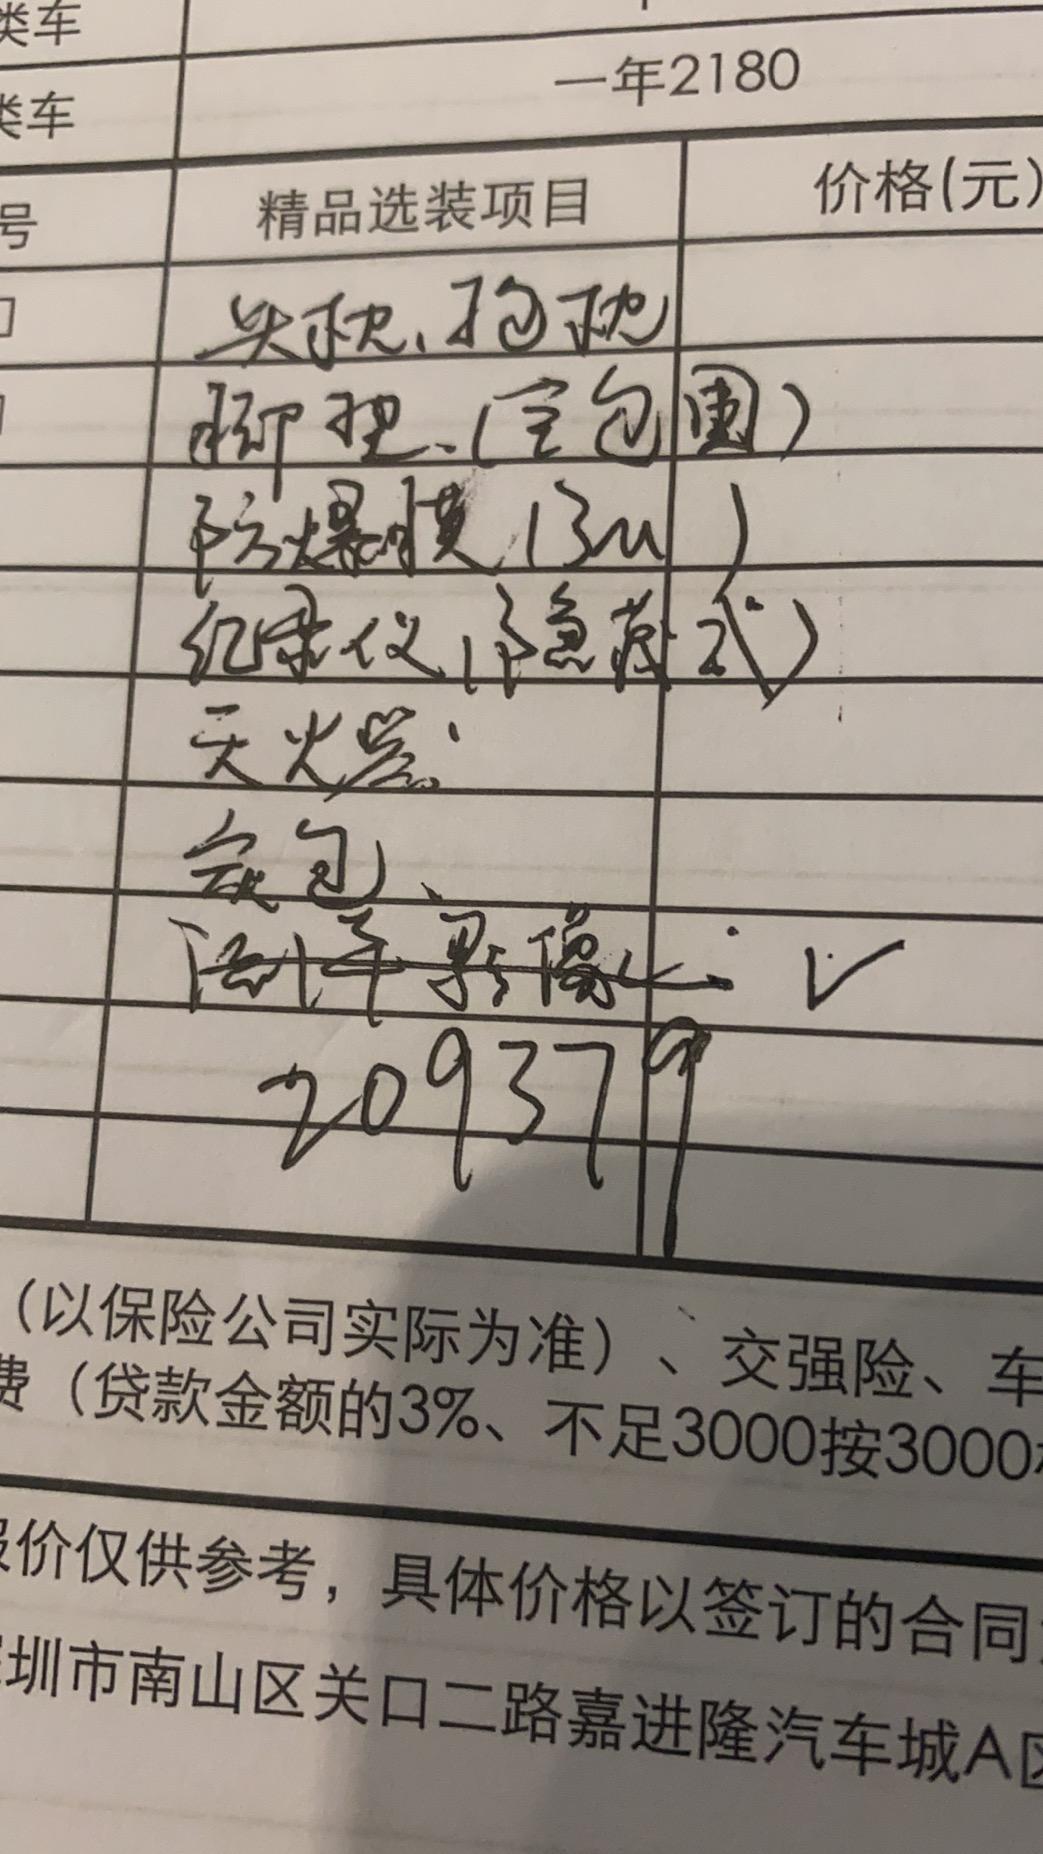 类车
类车 一年2180
号 精品选装项目 价格(元)
头枕、抱枕
脚垫、(全包围)
防爆膜(3M)
纪录仪(隐藏式)
灭火器
包
倒车影像 ✓
209379
(以保险公司实际为准)、交强险、车
费(贷款金额的3%、不足3000按3000
价仅供参考，具体价格以签订的合同
圳市南山区关口二路嘉进隆汽车城A区